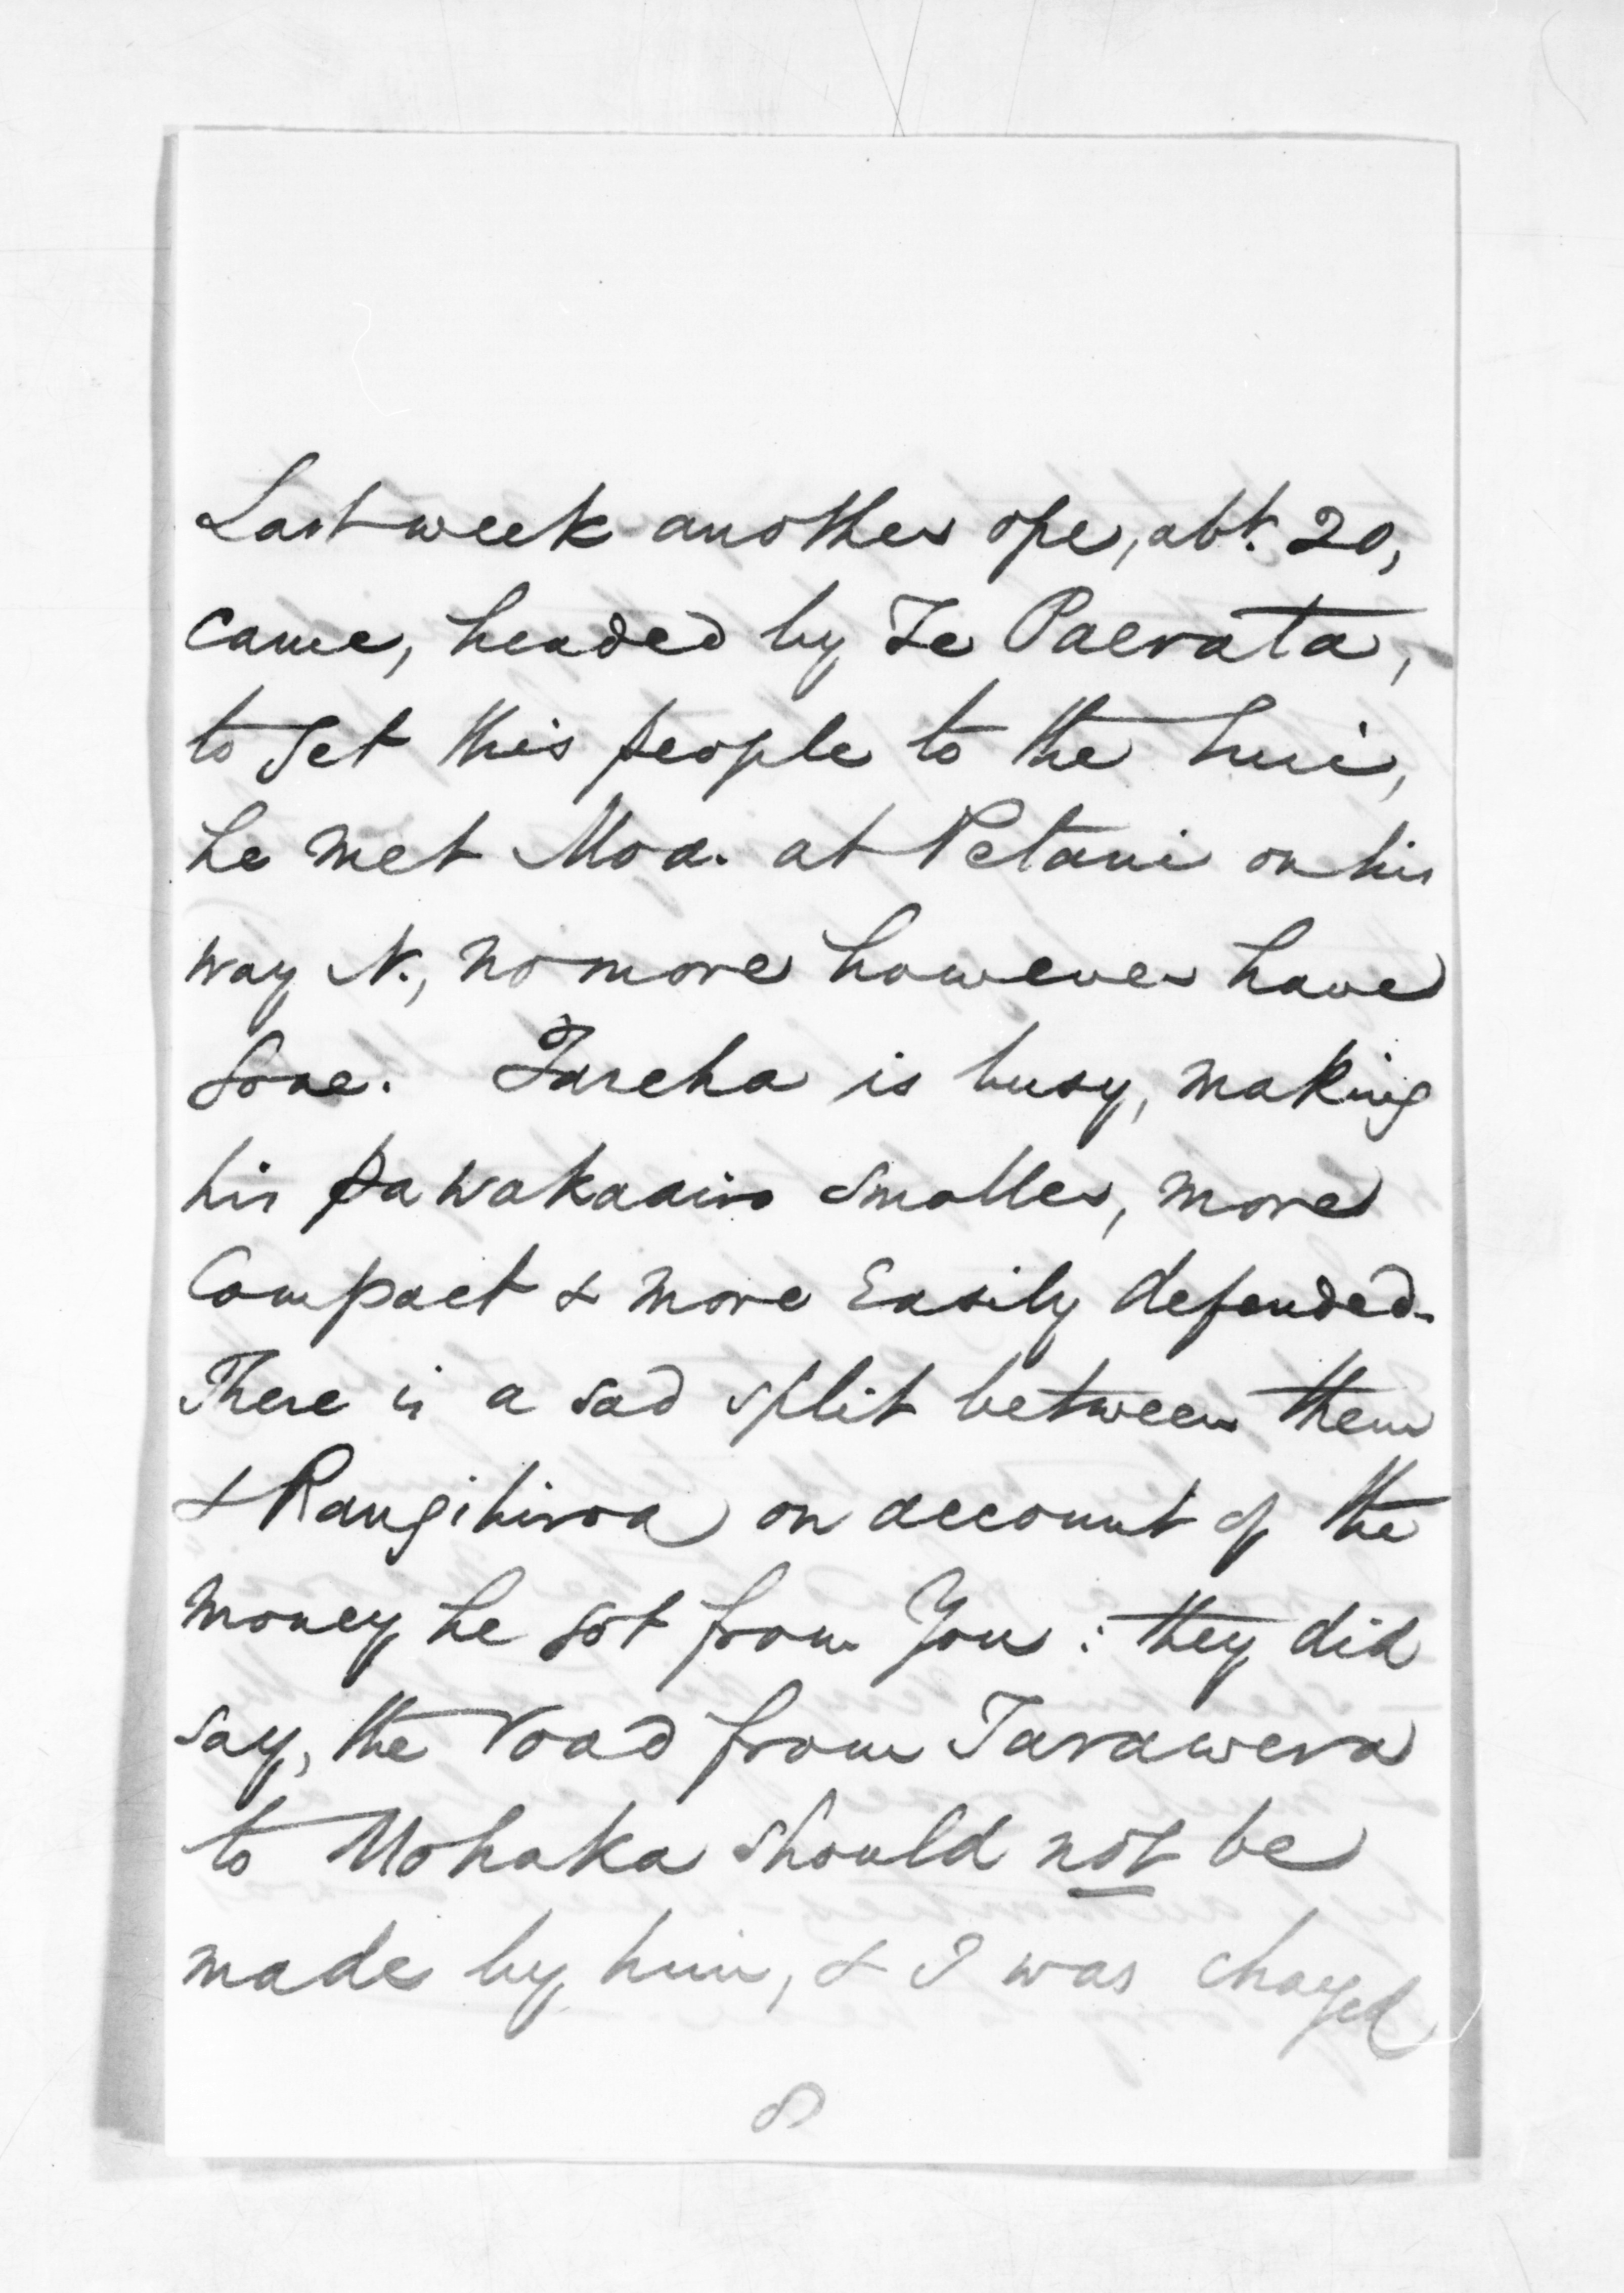 Last week another ope, abt. 20,
came, headed by Te Paerata,
to get this people to the hui,
he met Moa. at Petani on his
way N., no more however have
gone. Tareha is busy, making
his pa wakaairo smaller, more
compact & more easily defended.
There is a sad split between them
& Rangihiroa on account of the
money he got from you : they did
say, the road from Tarawera
to Mohaka should not be
made by him, & I was chargd
8